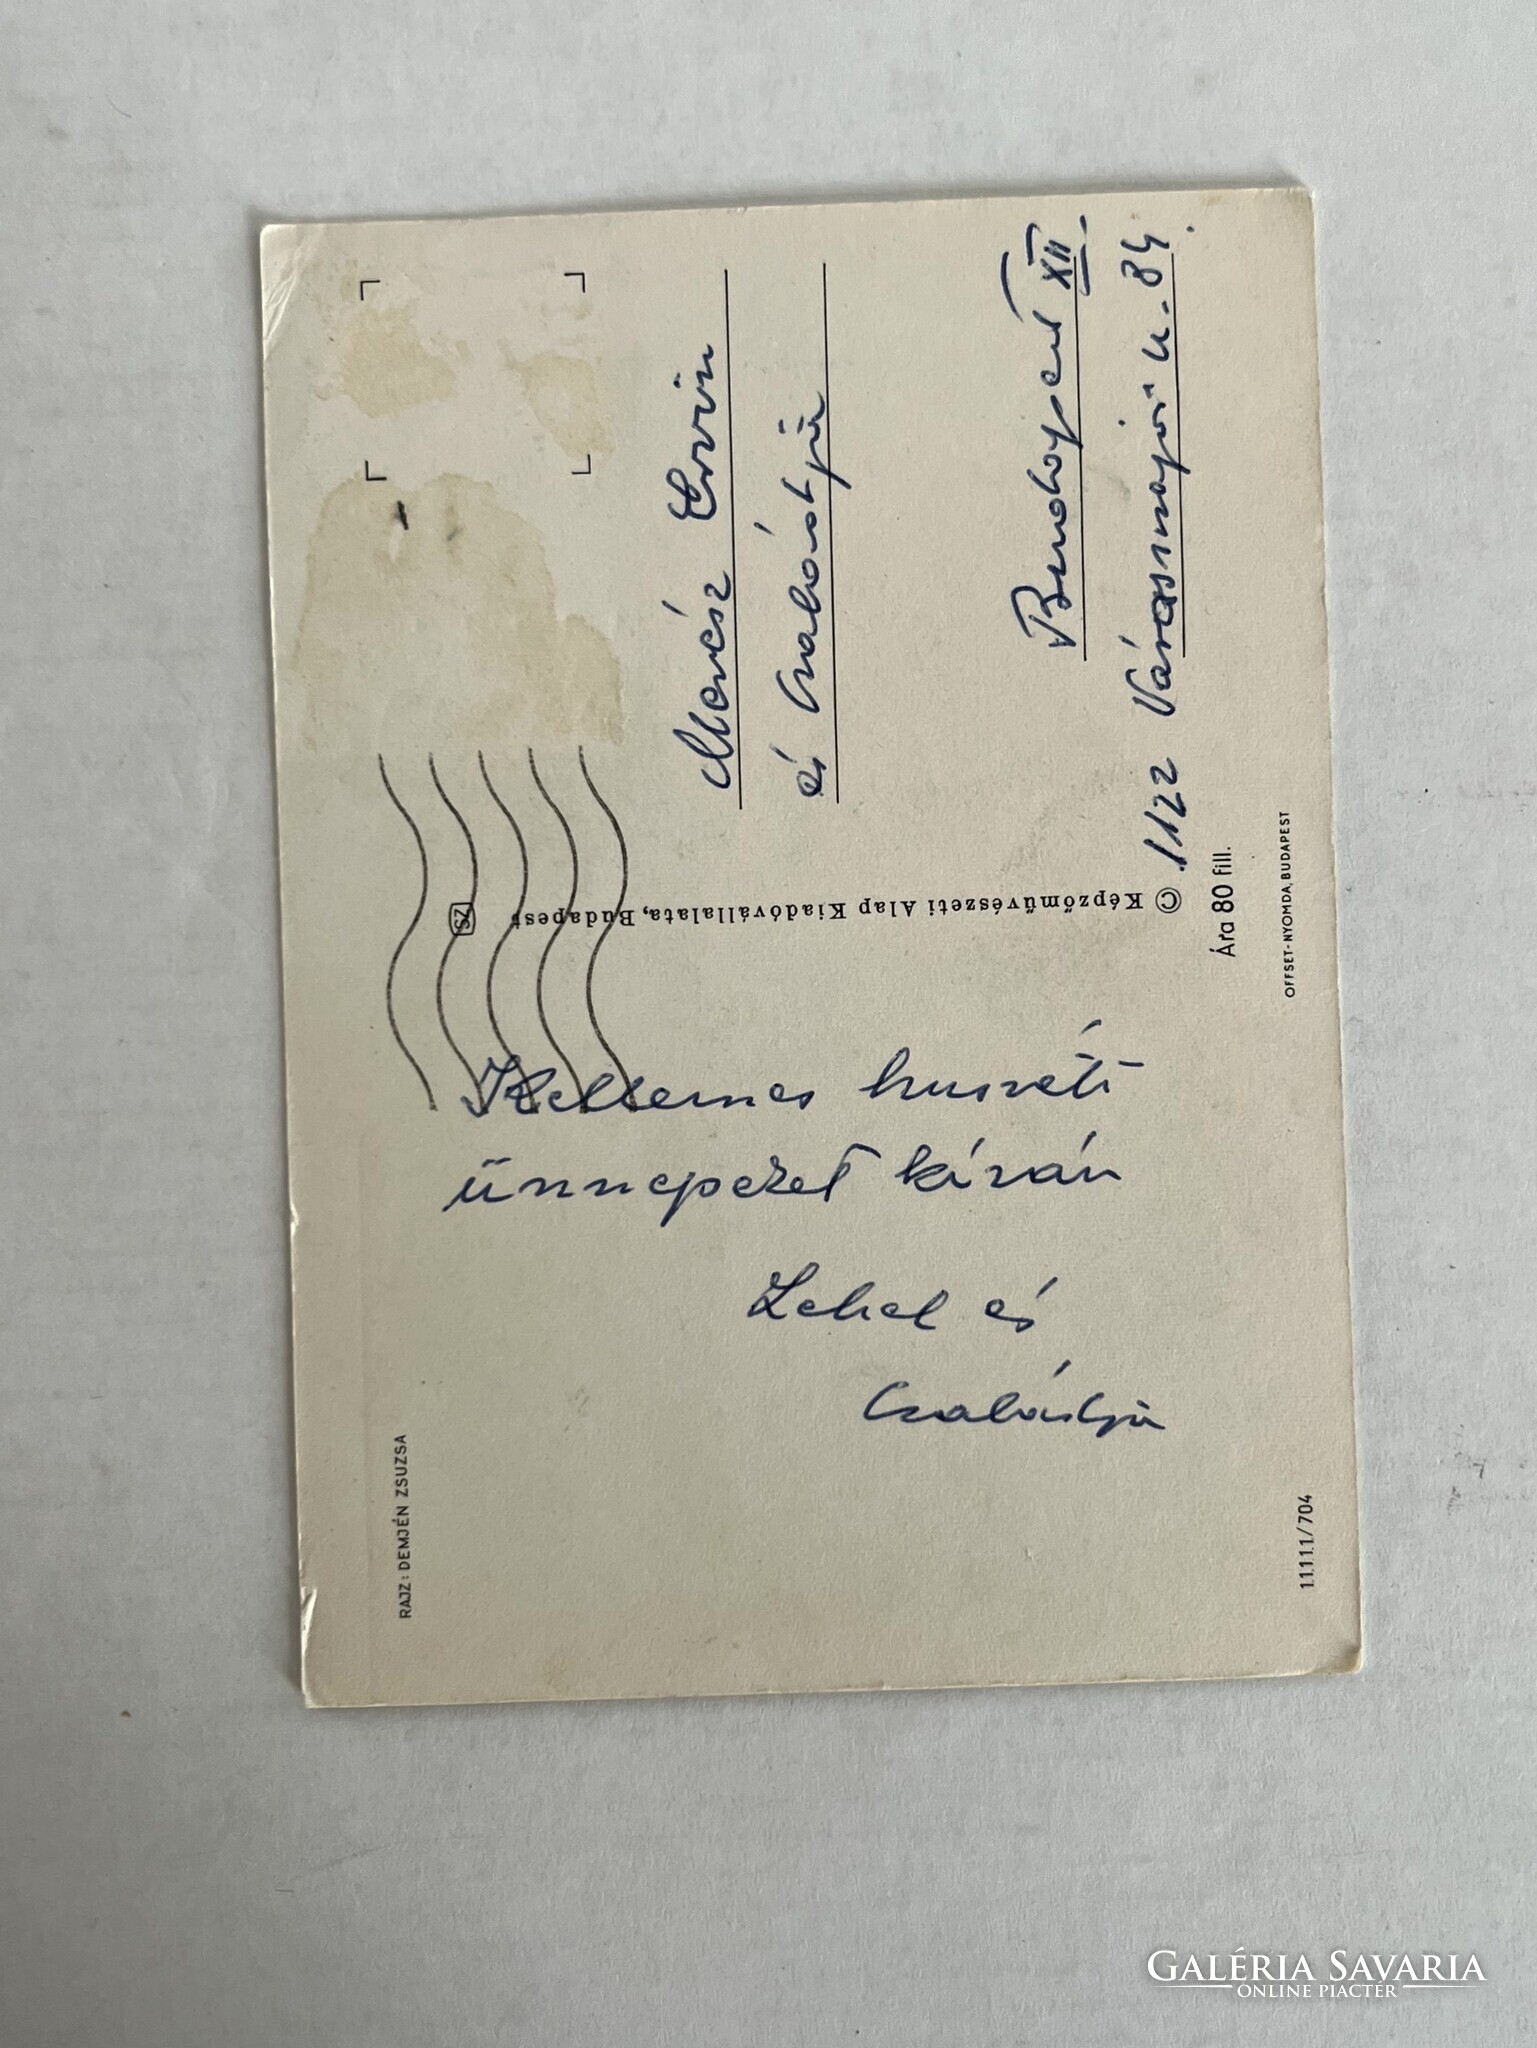 RAJZ: DEMJÉN ZSUZSA
Kellemes husvéti
ünnepeket kíván
Lehel és
Családja
11111/704
© Képzőművészeti Alap Kiadóvállalata, Budapest
ZS
Ervin
és Családja
Budapest XII.
1122 Városmajor u. 84.
Ára 80 fill.
OFFSET-NYOMDA, BUDAPEST
GALÉRIA SAVARIA
ONLINE PIACTÉR